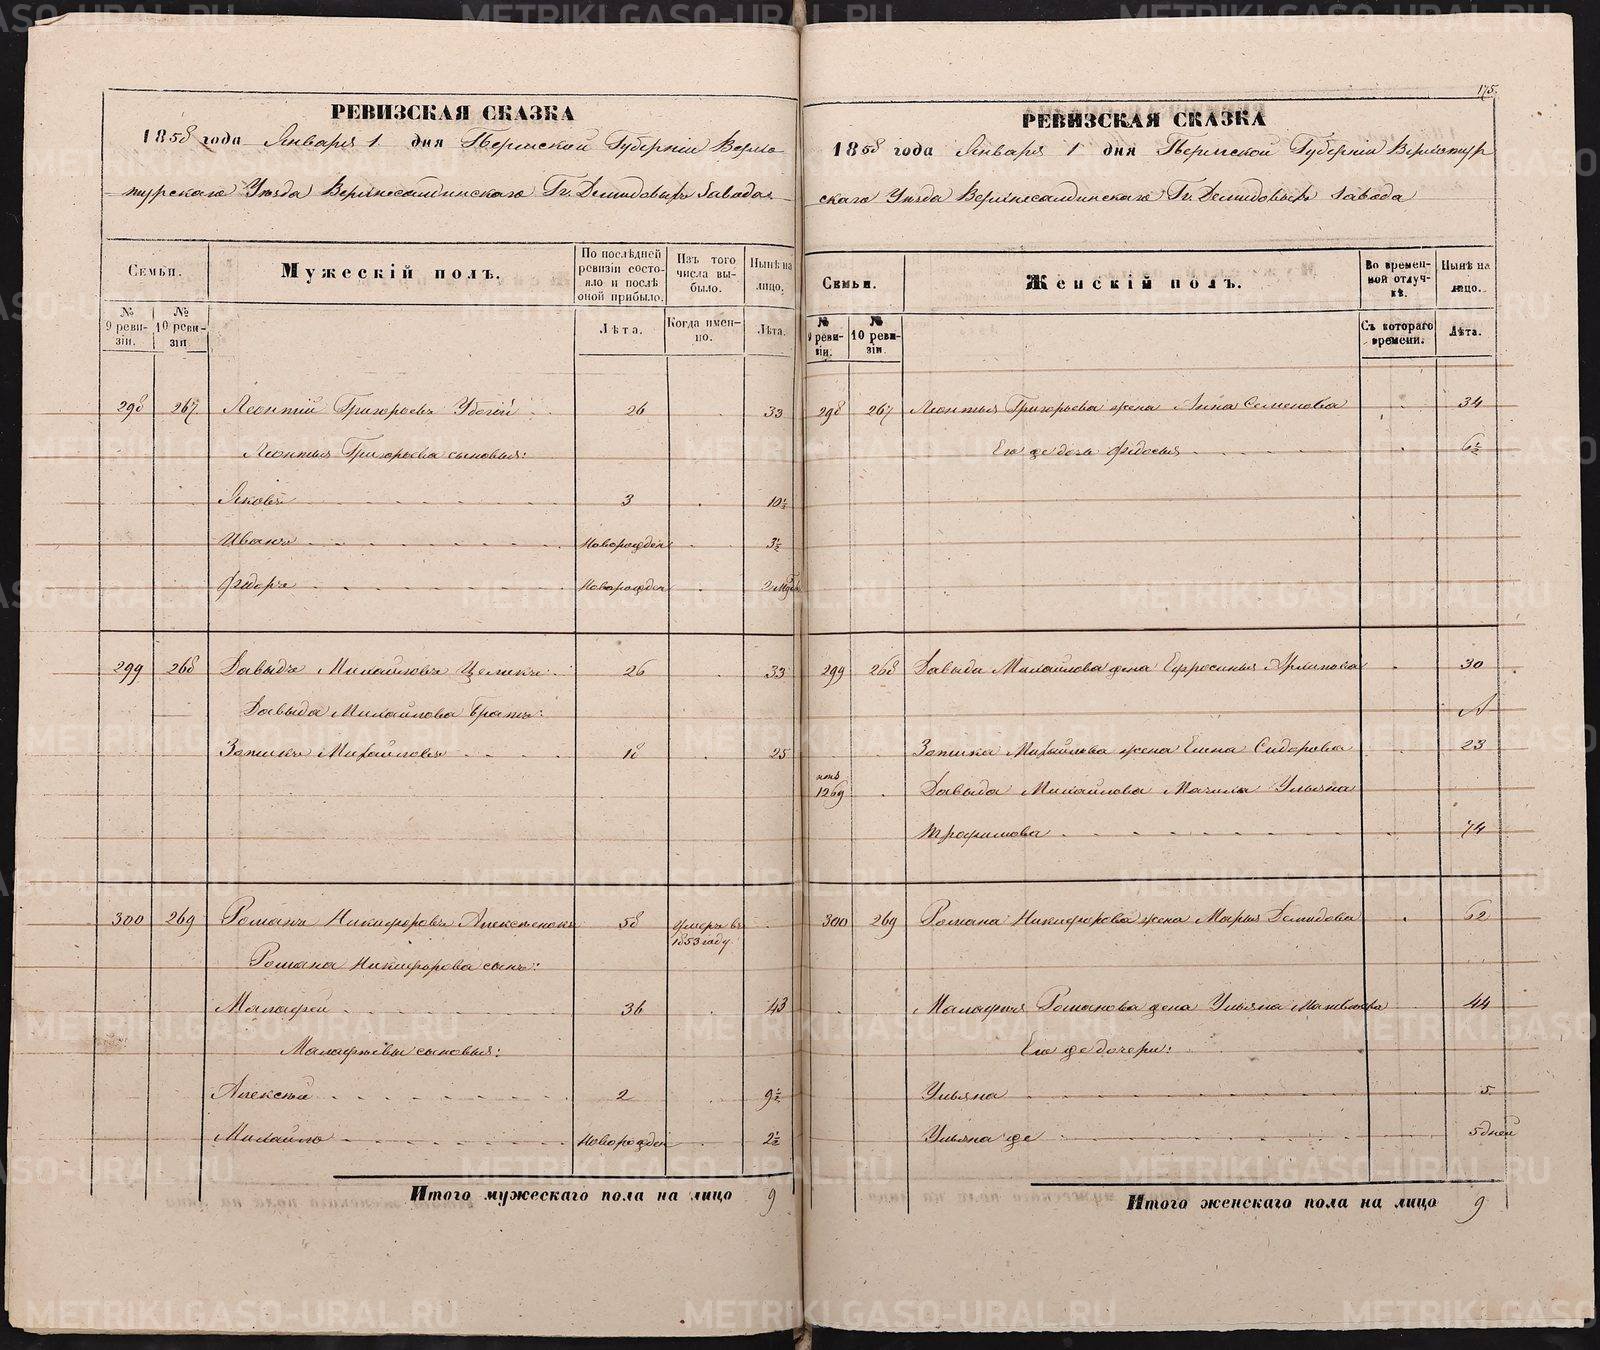 РЕВИЗСКАЯ СКАЗКА
1858 года Января 1 дня Пермской Губернiи Верхо-
турскаго Уѣзда Верхнесалдинскаго Гг. Демидовыхъ Завода.
Семьи.
Мужескiй полъ.
По послѣдней ревизiи состояло и послѣ оной прибыло.
Изъ того числа выбыло.
Нынѣ на лицо.
№ 9 ревизiи.
№ 10 ревизiи
Лѣта.
Когда именно.
Лѣта.
298 267 Леонтiй Григорьевъ 26 33
Леонтья Григорьева сыновья:
Яковъ 3 10½
Иванъ Новорожден 3½
Ѳидоръ Новорожден
299 268 Давыдъ Михайловъ 26 33
Давыда Михайлова братъ:
Михайловъ 18 25
300 269 Романъ Никифоровъ 58 Умеръ въ 1853 году
Романа Никифорова сынъ:
Малафей 36 43
Малафѣевы сыновья:
Алексѣй 2 9½
Михайло Новорожден 2½
Итого мужескаго пола на лицо 9
175.
РЕВИЗСКАЯ СКАЗКА
1858 года Января 1 дня Пермской Губернiи Верхотур
скаго Уѣзда Верхнесалдинскаго Гг. Демидовыхъ Завода
Семьи.
Женскiй полъ.
Во временной отлучкѣ.
Нынѣ на лицо.
№ 9 ревизiи.
№ 10 ревизiи.
Съ котораго времени.
Лѣта.
298 267 Леонтья Григорьева жена Анна Семенова 34
Его же дочь Ѳидосья 6½
299 268 Давыда Михайлова жена Ефросинья 30
Михайлова жена Елена Сидорова 23
изъ 1269 Давыда Михайлова Мачиха Ульяна
Трофимова 74
300 269 Романа Никифорова жена Марья Демидова 62
Малафѣя Романова жена Ульяна 44
Его же дочери:
Ульяна 5
Ульяна же 5 дней
Итого женскаго пола на лицо 9
METRIKI.GASO-URAL.RU